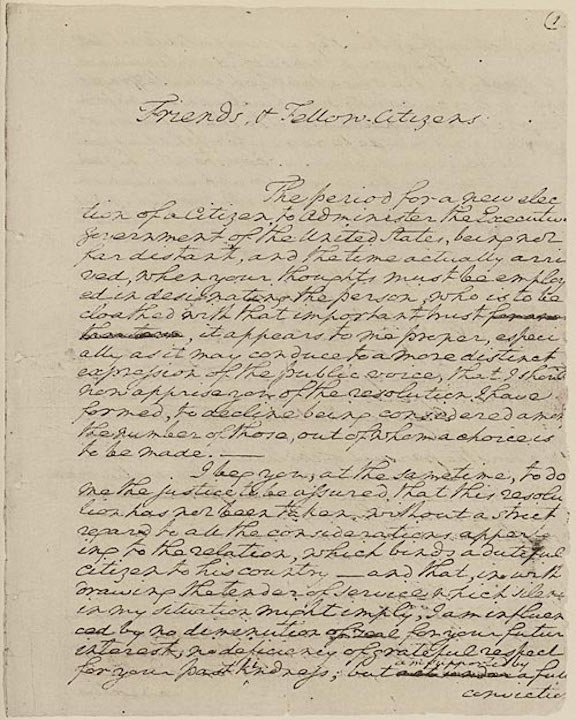 (1
Friends, & Fellow-Citizens
The period for a new elec
tion of a Citizen, to Administer the Executive
government of the United States, being not
far distant, and the time actually arri
ved, when your thoughts must be employ
ed in designating the person, who is to be
cloathed with that important trust
, it appears to me proper, especi
ally as it may conduce to a more distinct
expression of the public voice, that I should
now apprise you of the resolution I have
formed, to decline being considered among
the number of those, out of whom a choice is
to be made.—
I beg you, at the same time, to do
me the justice to be assured, that this resolu
tion has not been taken, without a strict
regard to all the considerations apper
ing to the relation, which binds a dutiful
citizen to his country—and that, in with
drawing the tender of service which silence
in my situation might imply, I am influen
ced by no diminution of zeal for your future
interest, no deficiency of grateful respect
am supported by
for your past kindness; but a full
conviction